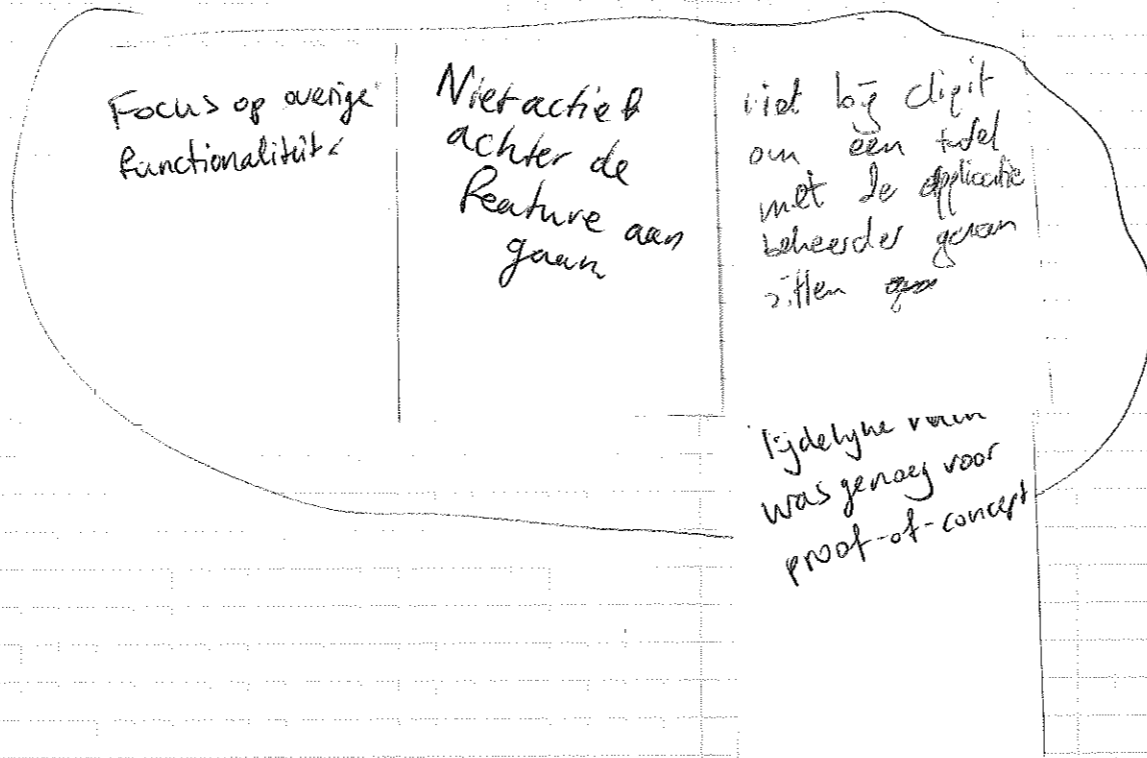 Focus op overige
functionaliteit
Niet actief
achter de
feature aan
gaan
niet bij digit
om een tafel
met de applicatie
beheerder gaan
zitten
Tijdelijke
was genoeg voor
proof-of-concept